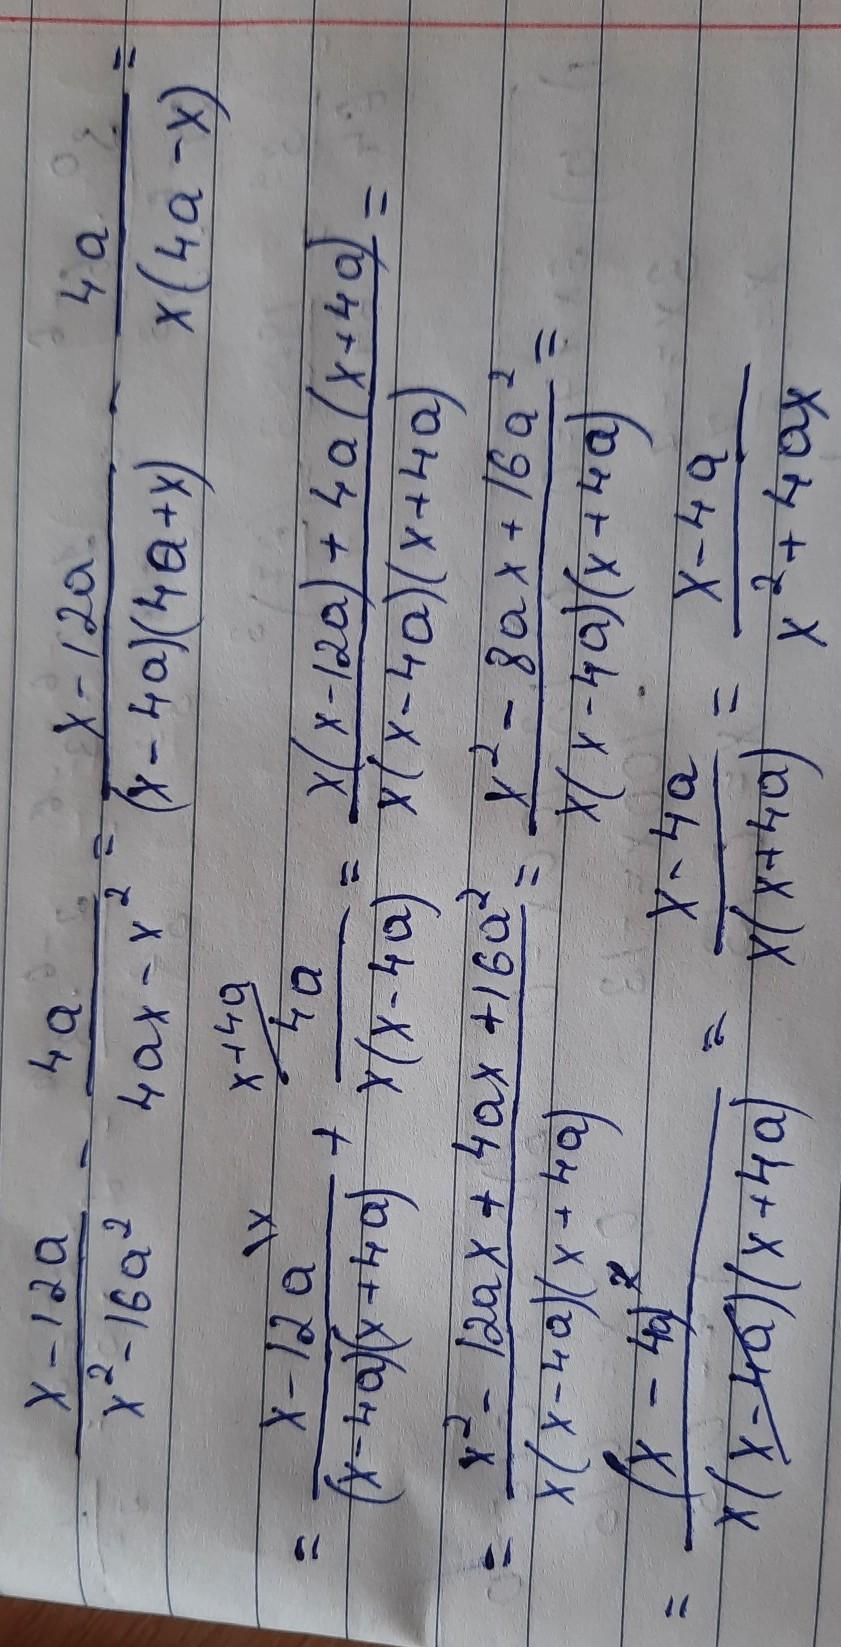 (x-12a)/(x²-16a²) - 4a/(4ax-x²) = (x-12a)/((x-4a)(4a+x)) - 4a/(x(4a-x)) =
= (x-12a)/((x-4a)(x+4a)) \x + 4a/(x(x-4a)) /x+4a = (x(x-12a)+4a(x+4a))/(x(x-4a)(x+4a)) =
= (x²-12ax+4ax+16a²)/(x(x-4a)(x+4a)) = (x²-8ax+16a²)/(x(x-4a)(x+4a)) =
= (x-4a)²/(x(x-4a)(x+4a)) = (x-4a)/(x(x+4a)) = (x-4a)/(x²+4ax)